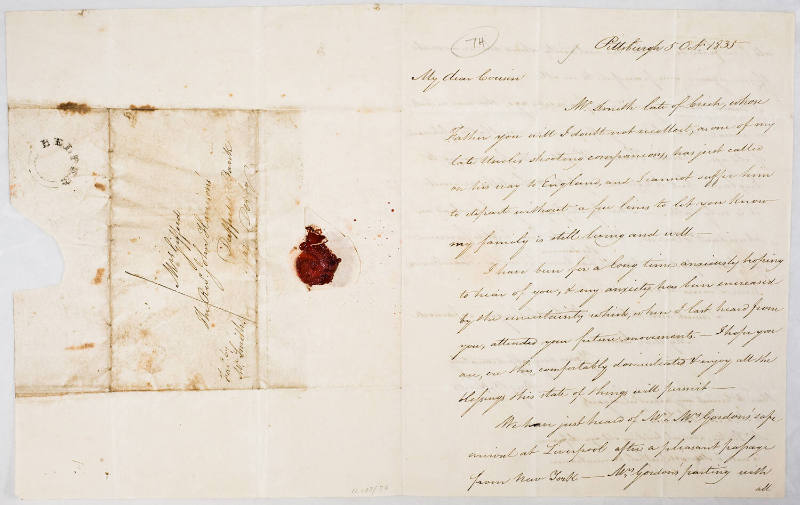 74
Pittsburgh 5 Oct. 1835
My dear Cousin
Mr. Smith late of Creich, whose
Father you will I doubt not recollect, as one of my
late Uncle's shooting companions, has just called
on his way to England, and I cannot suffer him
to depart without a few lines to let you know
my family is still living and well. —
I have been for a long time anxiously hoping
to hear of you, & my anxiety has been increased
by the uncertainty which, when I last heard from
you, attended your future movements. — I hope you
are, ere this, comfortably domiciliated & enjoy all the
blessings this state of things will permit —
We have just heard of Mr. & Mrs. Gordon's safe
arrival at Liverpool after a pleasant passage
from New York — Mrs. Gordon's parting with
all
Derby
Duffield Bank
The Revd. John
Mrs
Mr. Smith